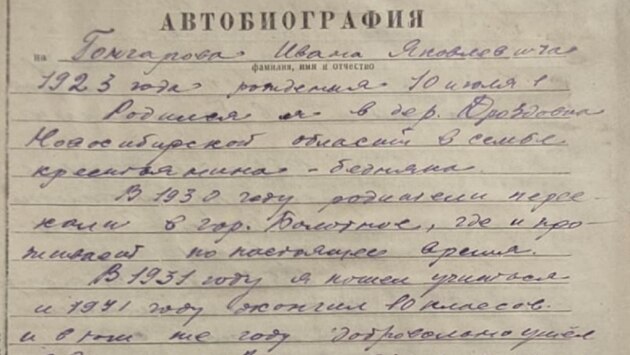 АВТОБИОГРАФИЯ
на Гончарова Ивана Яковлевича
фамилия, имя и отчество
1923 года рождения 10 июля
Родился я в дер. Дроздовка
Новосибирской области в семье
крестьянина - бедняка.
В 1930 году родители перее-
хали в гор. Болотное, где и про-
живают по настоящее время.
В 1931 году я пошел учиться
и 1941 году окончил 10 классов
и в том же году добровольно ушёл